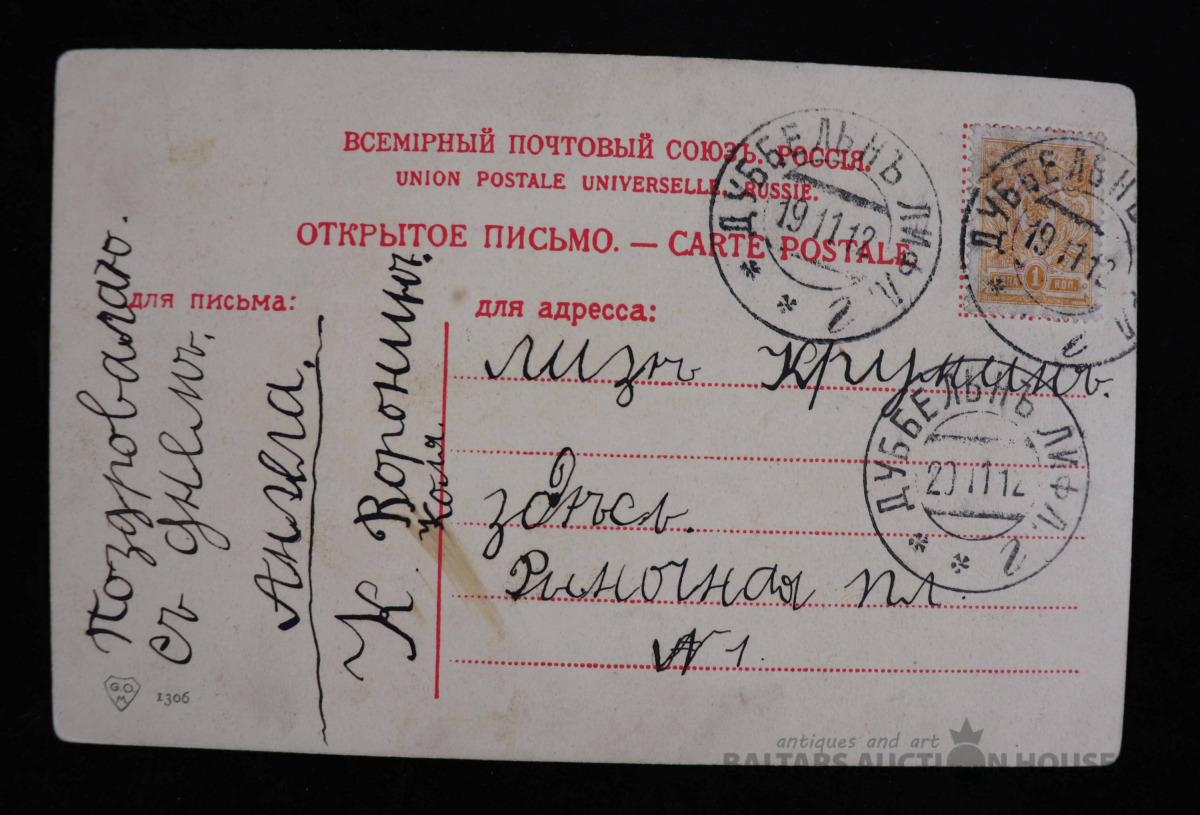 ВСЕМІРНЫЙ ПОЧТОВЫЙ СОЮЗЪ. РОССІЯ.
UNION POSTALE UNIVERSELLE. RUSSIE.
ОТКРЫТОЕ ПИСЬМО. — CARTE POSTALE
для письма:
для адресса:
Поздровалаю.
съ днемъ
Ангела.
К Воронинъ.
Коля.
Лизѣ Крукинъ.
здѣсь.
Рыночная пл.
№ 1.
ДУББЕЛЬНЪ ЛИФЛ. г.
19 11 12
ДУББЕЛЬНЪ Л г
19 11 12
1 КОП.
ДУББЕЛЬНЪ ЛИФЛ. г.
20 11 12
G.O.M.
1306
antiques and art
BALTARS AUCTION HOUSE